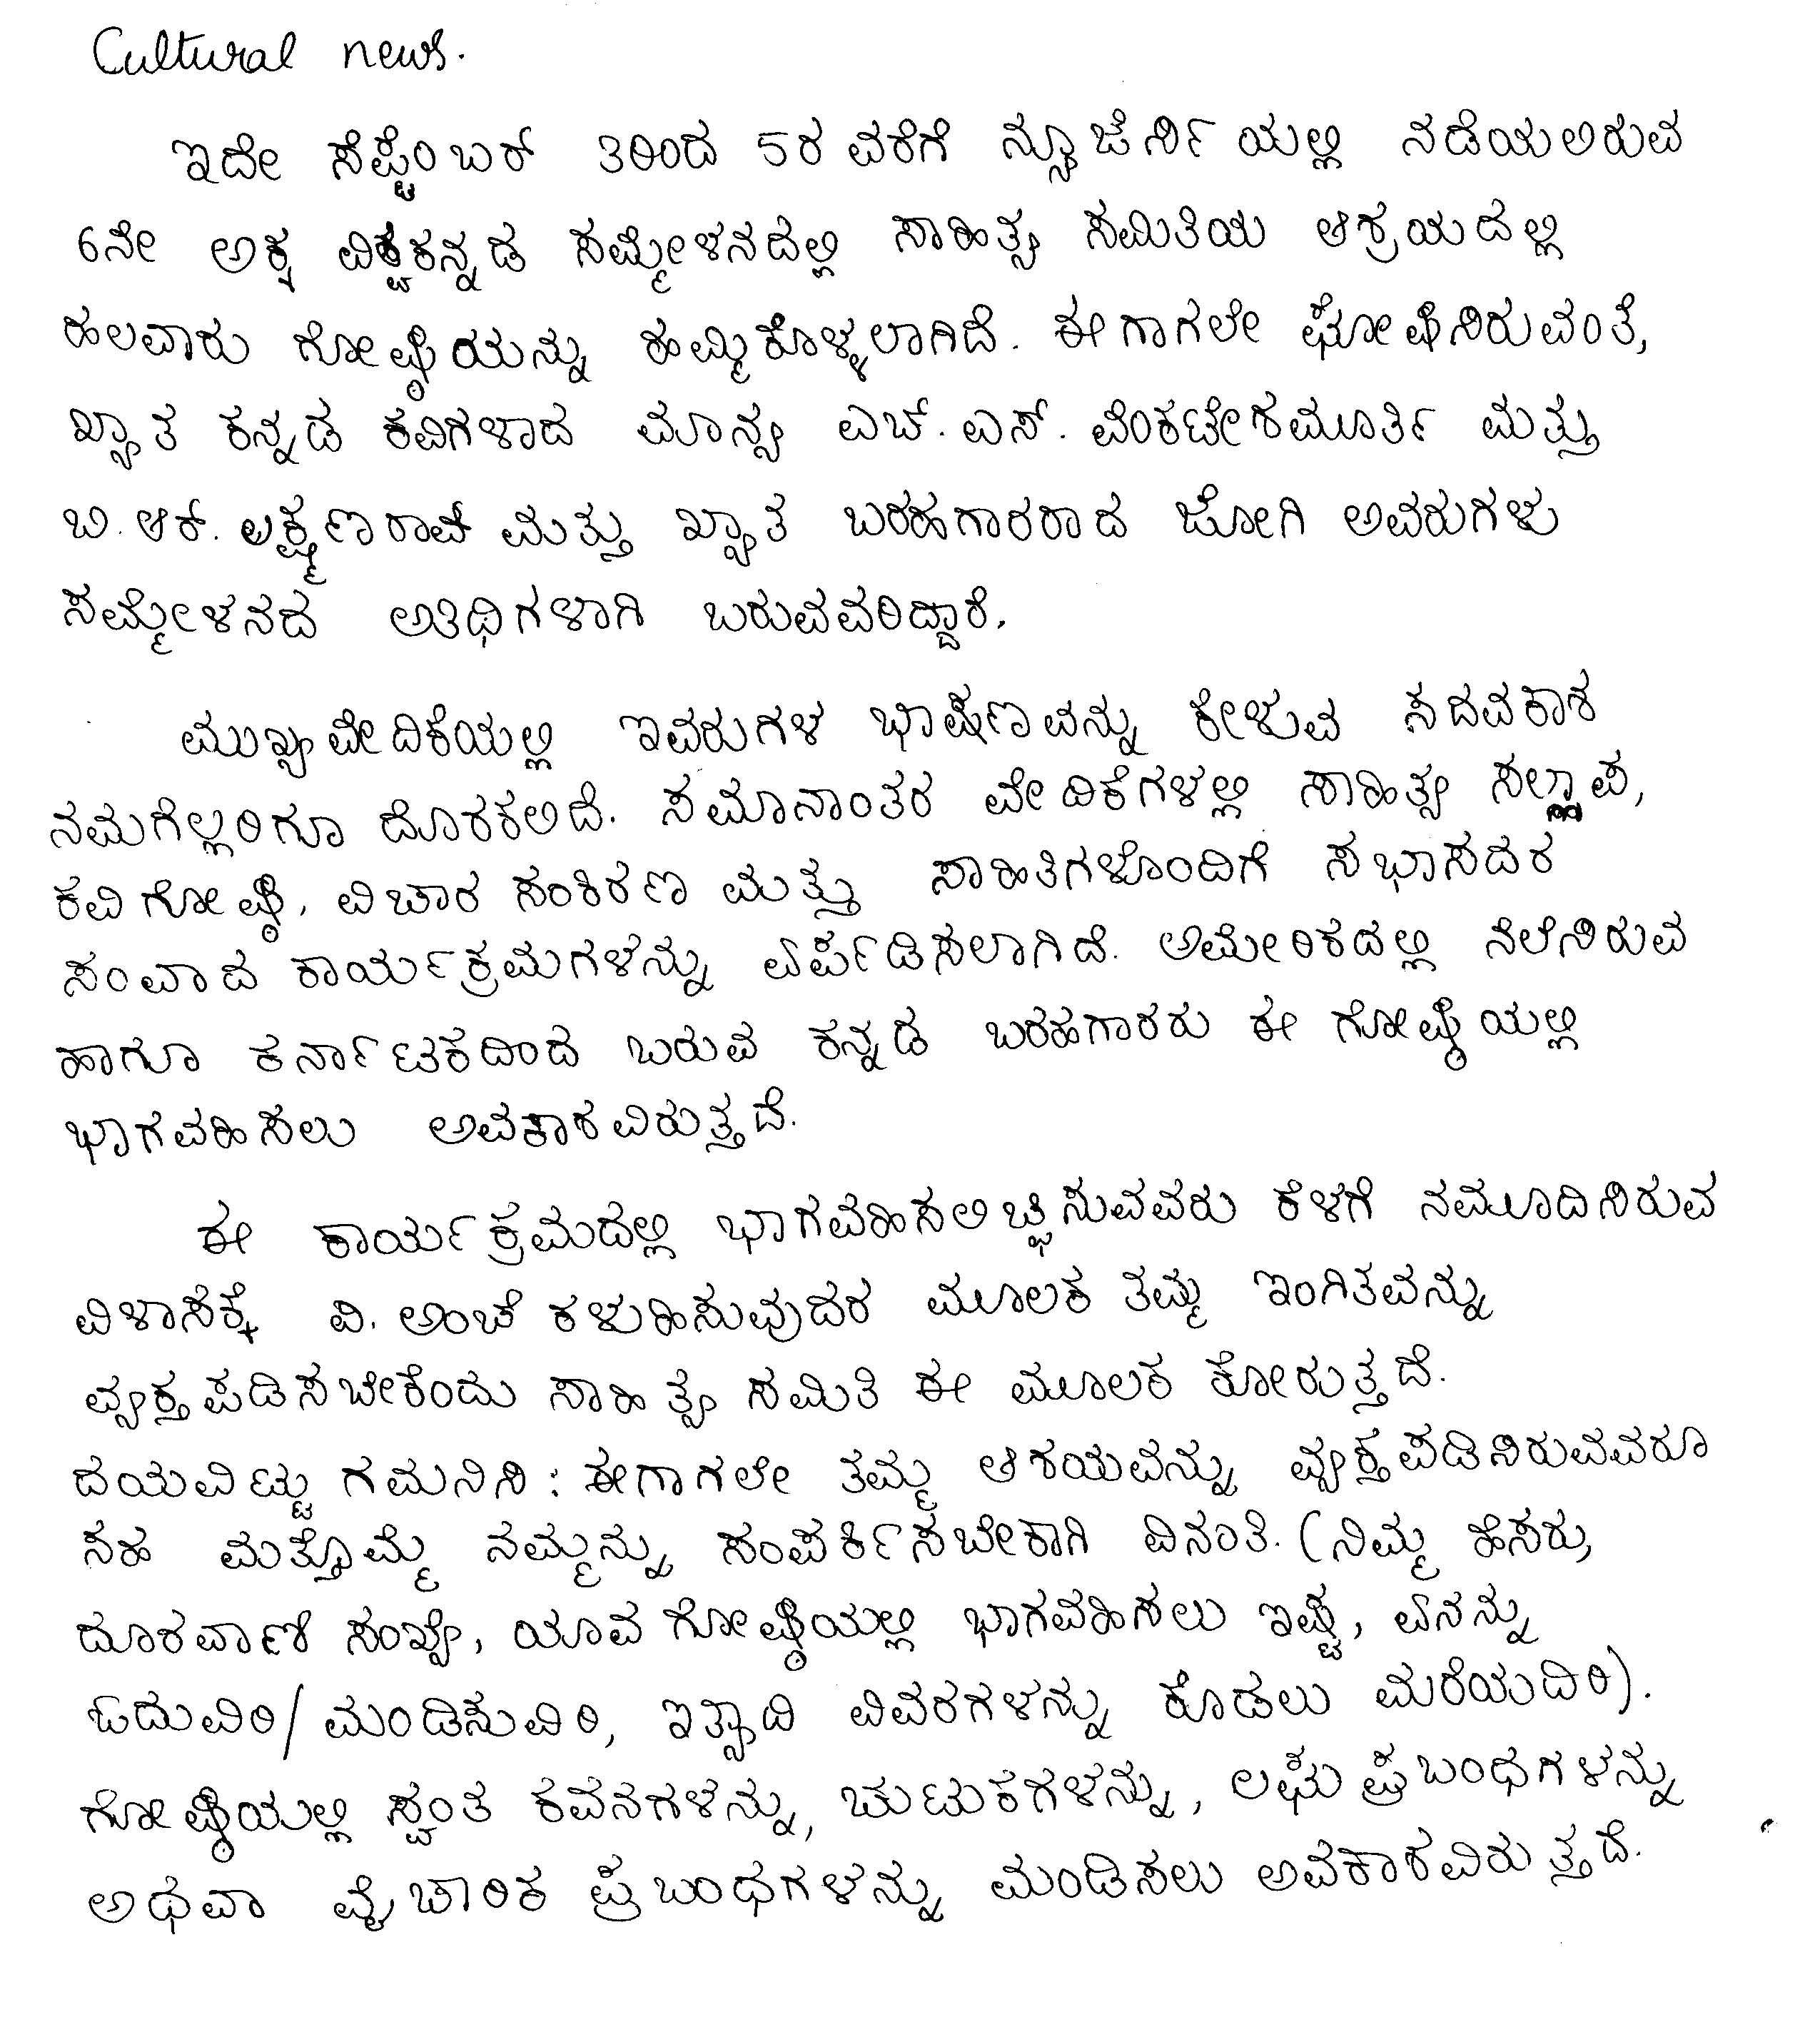 Cultural news.
ಇದೇ ಸೆಪ್ಟೆಂಬರ್ 3ರಿಂದ 5ರ ವರೆಗೆ ನ್ಯೂಜೆರ್ಸಿಯಲ್ಲಿ ನಡೆಯಲಿರುವ
6ನೇ ಅಕ್ಕ ವಿಶ್ವಕನ್ನಡ ಸಮ್ಮೇಳನದಲ್ಲಿ ಸಾಹಿತ್ಯ ಸಮಿತಿಯ ಆಶ್ರಯದಲ್ಲಿ
ಹಲವಾರು ಗೋಷ್ಠಿಯನ್ನು ಹಮ್ಮಿಕೊಳ್ಳಲಾಗಿದೆ. ಈಗಾಗಲೇ ಘೋಷಿಸಿರುವಂತೆ,
ಖ್ಯಾತ ಕನ್ನಡ ಕವಿಗಳಾದ ಮಾನ್ಯ ಎಚ್. ಎಸ್. ವೆಂಕಟೇಶಮೂರ್ತಿ ಮತ್ತು
ಬಿ. ಆರ್. ಲಕ್ಷ್ಮಣರಾವ್ ಮತ್ತು ಖ್ಯಾತ ಬರಹಗಾರರಾದ ಜೋಗಿ ಅವರುಗಳು
ಸಮ್ಮೇಳನದ ಅತಿಥಿಗಳಾಗಿ ಬರುವವರಿದ್ದಾರೆ.
ಮುಖ್ಯವೇದಿಕೆಯಲ್ಲಿ ಇವರುಗಳ ಭಾಷಣವನ್ನು ಕೇಳುವ ಸದವಕಾಶ
ನಮಗೆಲ್ಲರಿಗೂ ದೊರಕಲಿದೆ. ಸಮಾನಾಂತರ ವೇದಿಕೆಗಳಲ್ಲಿ ಸಾಹಿತ್ಯ ಸಲ್ಲಾಪ,
ಕವಿಗೋಷ್ಠಿ, ವಿಚಾರ ಸಂಕಿರಣ ಮತ್ತು ಸಾಹಿತಿಗಳೊಂದಿಗೆ ಸಭಾಸದರ
ಸಂವಾದ ಕಾರ್ಯಕ್ರಮಗಳನ್ನು ಏರ್ಪಡಿಸಲಾಗಿದೆ. ಅಮೇರಿಕದಲ್ಲಿ ನೆಲೆಸಿರುವ
ಹಾಗೂ ಕರ್ನಾಟಕದಿಂದ ಬರುವ ಕನ್ನಡ ಬರಹಗಾರರು ಈ ಗೋಷ್ಠಿಯಲ್ಲಿ
ಭಾಗವಹಿಸಲು ಅವಕಾಶವಿರುತ್ತದೆ.
ಈ ಕಾರ್ಯಕ್ರಮದಲ್ಲಿ ಭಾಗವಹಿಸಲಿಚ್ಛಿಸುವವರು ಕೆಳಗೆ ನಮೂದಿಸಿರುವ
ವಿಳಾಸಕ್ಕೆ ವಿ. ಅಂಚೆ ಕಳುಹಿಸುವುದರ ಮೂಲಕ ತಮ್ಮ ಇಂಗಿತವನ್ನು
ವ್ಯಕ್ತಪಡಿಸಬೇಕೆಂದು ಸಾಹಿತ್ಯ ಸಮಿತಿ ಈ ಮೂಲಕ ಕೋರುತ್ತದೆ.
ದಯವಿಟ್ಟು ಗಮನಿಸಿ : ಈಗಾಗಲೇ ತಮ್ಮ ಆಶಯವನ್ನು ವ್ಯಕ್ತಪಡಿಸಿರುವವರೂ
ಸಹ ಮತ್ತೊಮ್ಮೆ ನಮ್ಮನ್ನು ಸಂಪರ್ಕಿಸಬೇಕಾಗಿ ವಿನಂತಿ. (ನಿಮ್ಮ ಹೆಸರು,
ದೂರವಾಣಿ ಸಂಖ್ಯೆ, ಯಾವ ಗೋಷ್ಠಿಯಲ್ಲಿ ಭಾಗವಹಿಸಲು ಇಷ್ಟ, ಏನನ್ನು
ಓದುವಿರಿ/ಮಂಡಿಸುವಿರಿ, ಇತ್ಯಾದಿ ವಿವರಗಳನ್ನು ಕೊಡಲು ಮರೆಯದಿರಿ).
ಗೋಷ್ಠಿಯಲ್ಲಿ ಸ್ವಂತ ಕವನಗಳನ್ನು, ಚುಟುಕಗಳನ್ನು, ಲಘು ಪ್ರಬಂಧಗಳನ್ನು
ಅಥವಾ ವೈಚಾರಿಕ ಪ್ರಬಂಧಗಳನ್ನು ಮಂಡಿಸಲು ಅವಕಾಶವಿರುತ್ತದೆ.